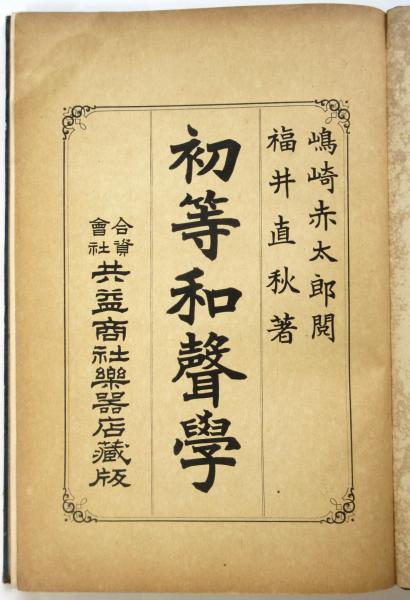 嶋崎赤太郎閲
福井直秋著
初等和聲學
合資會社共益商社樂器店藏版